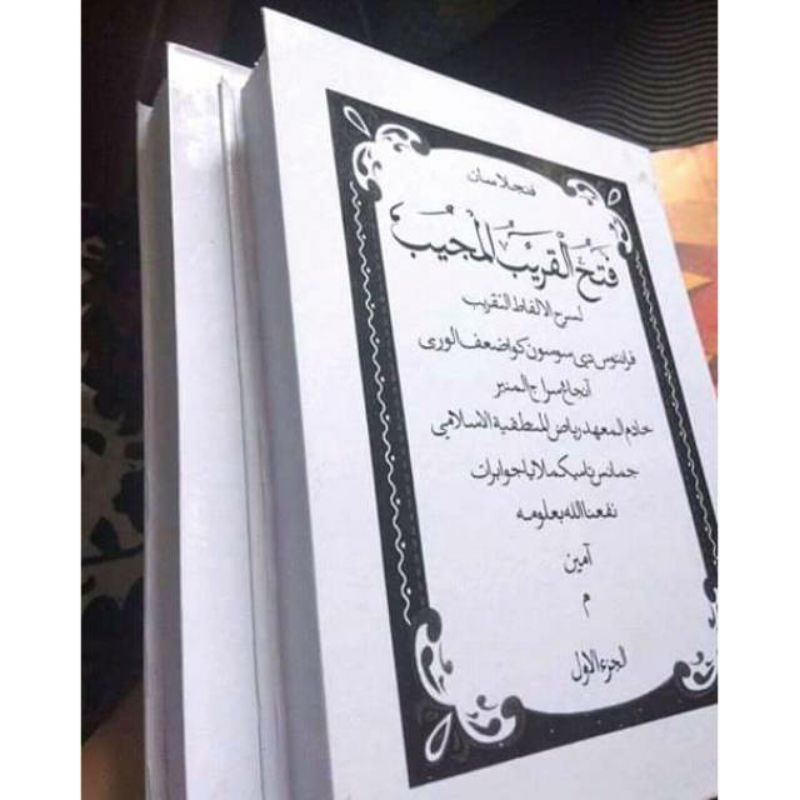 فنجلاسان
فَتْحُ الْقَرِيْبِ الْمُجِيْبِ
لسرح الالفاظ التقريب
فرانتوس دهى سوسون كواضعف الورى
آنجاغ سراج المنير
خادم المعهد رياض المنطقية الاسلامي
جمانس تاسيكملايا جوابرات
نفعنا الله بعلومه
آمين
م
الجزء الاول